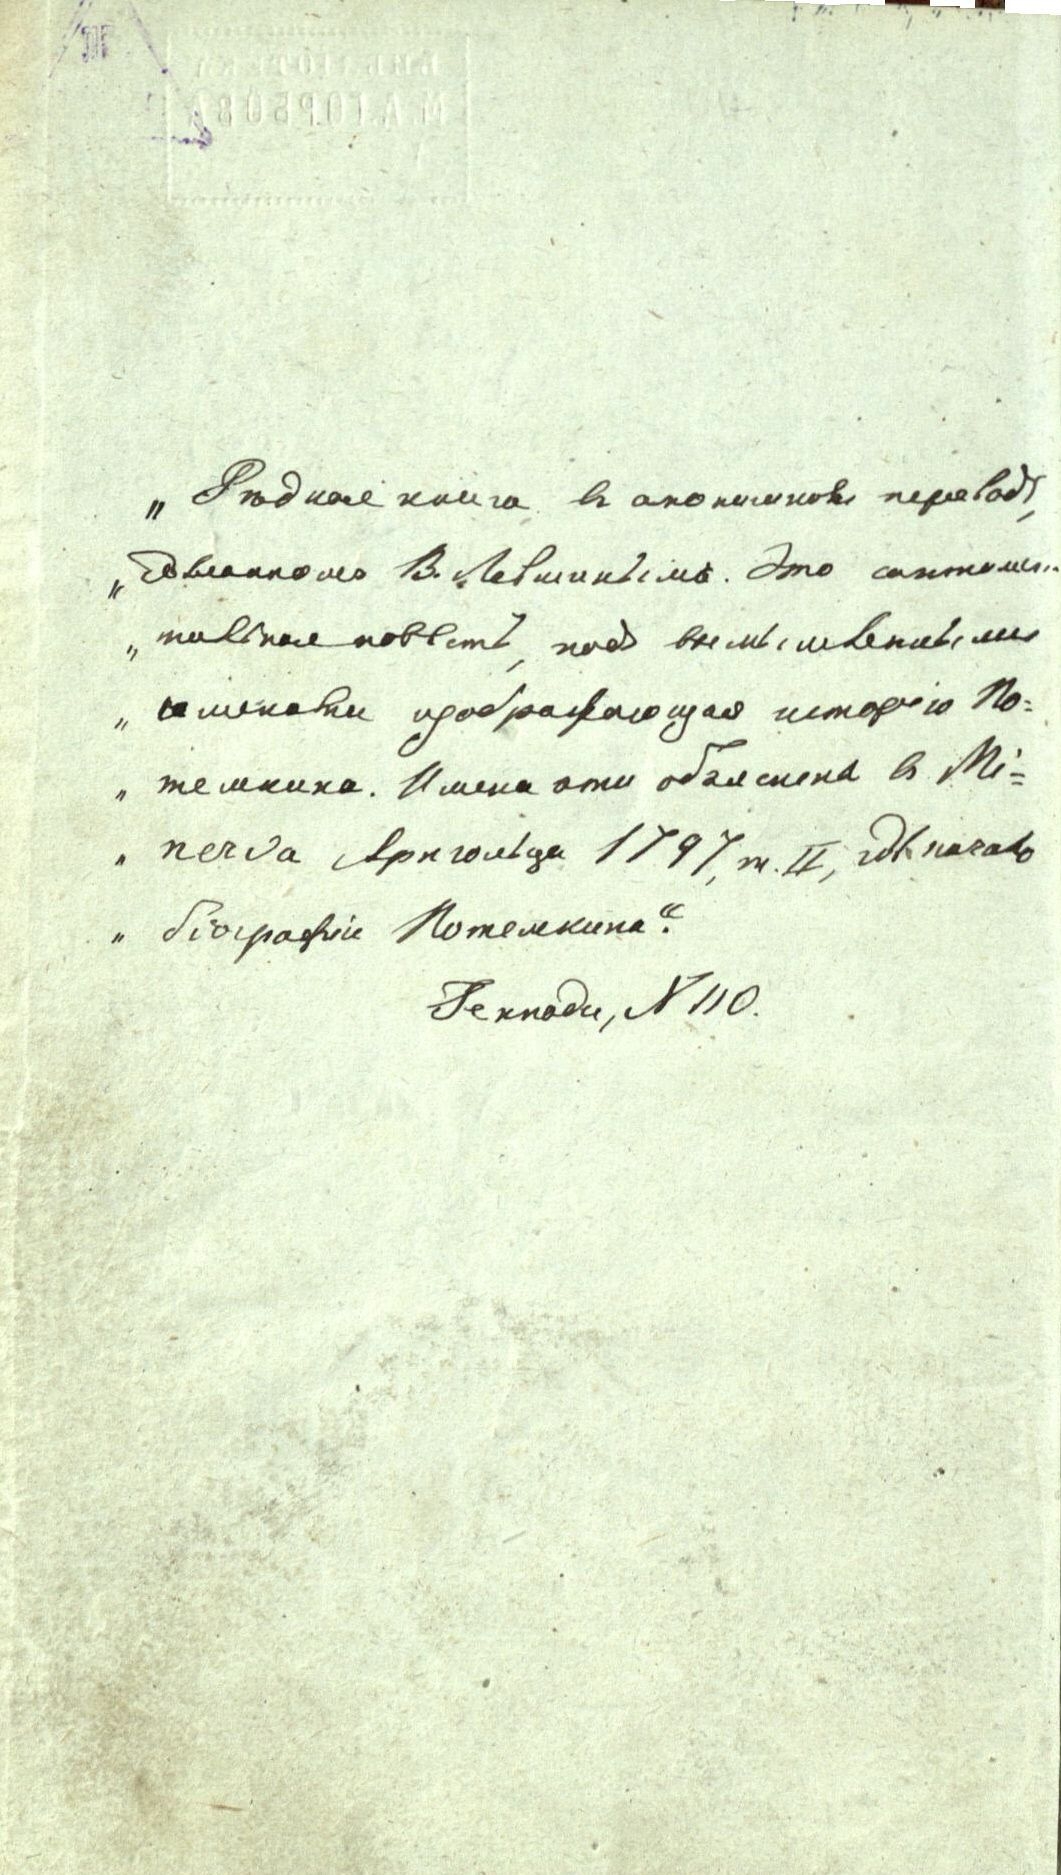 БИБЛІОТЕКА
М.А.ГОРБОВА
„ Рѣдкая книга въ анонимномъ переводѣ,
„ сдѣланномъ В. Левшинымъ. Это сантимен-
„ тальная повѣсть, подъ вымышленными
„ именами изображающая исторію По-
„ темкина. Имена эти объяснены въ Mi-
„ nerva Архгольца 1797, т. II, гдѣ начало
„ біографіи Потемкина“.
Геннади, N 110.